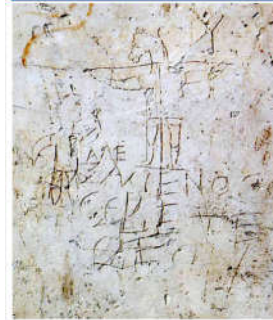 Υ
ΑΛΕ
ΞΑΜΕΝΟϹ
ϹΕΒΕΤΕ
ΘΕΟΝ